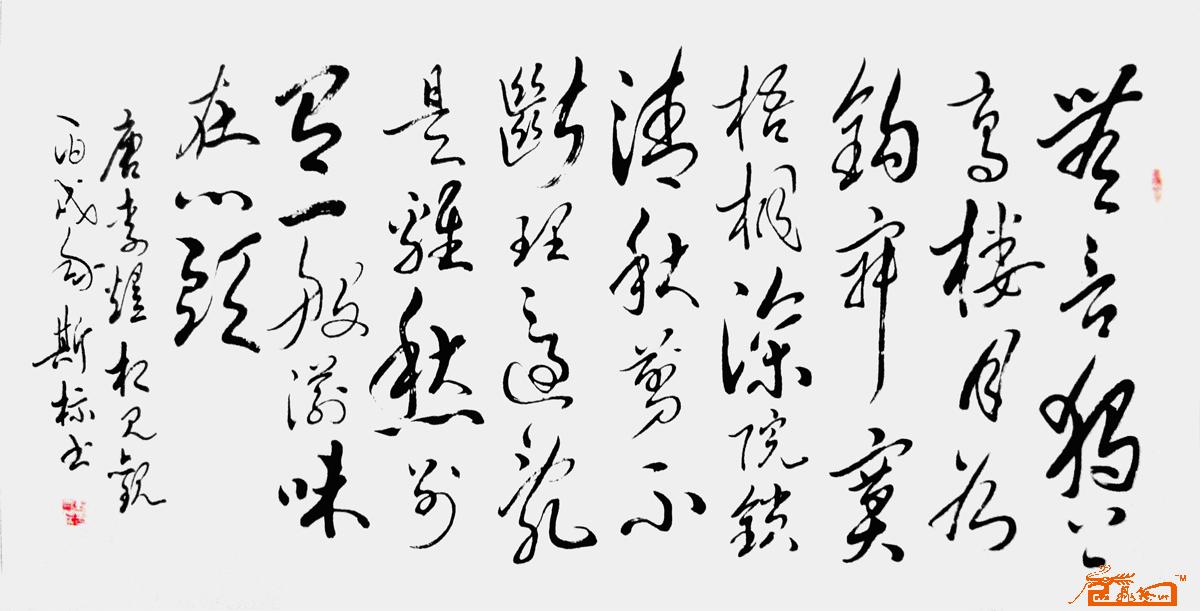 無言獨上
高樓月如
鈎寂寞
梧桐深院鎖
清秋剪不
斷理還亂
是離愁別
是一般滋味
在心頭
唐李煜相見歡
丙戌斯標書